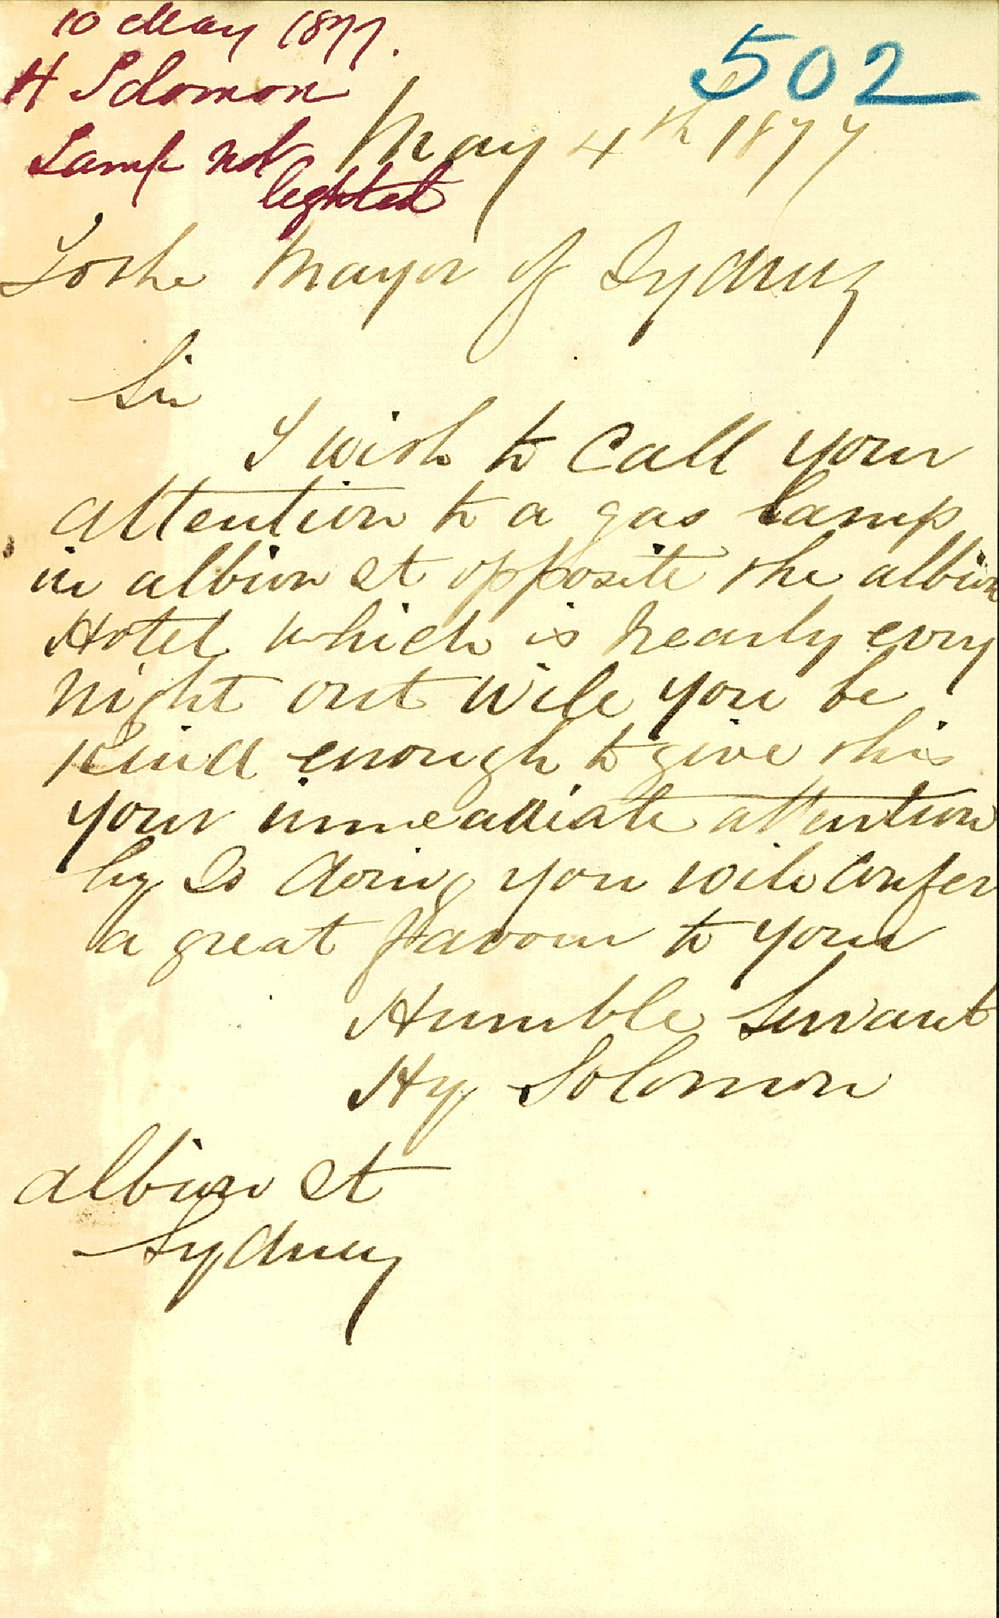 10 May 1877.
H Solomon
Lamp not
lighted
502
May 4th 1877
To the Mayor of Sydney
Sir
I wish to Call your
attention to a gas Lamp
in albion St opposite the albion
Hotel which is nearly evry
night out will you be
kind enough to give this
your immeadiate attention
by So doing you will Confer
a great favour to your
Humble Servant
Hy Solomon
albion St
Sydney